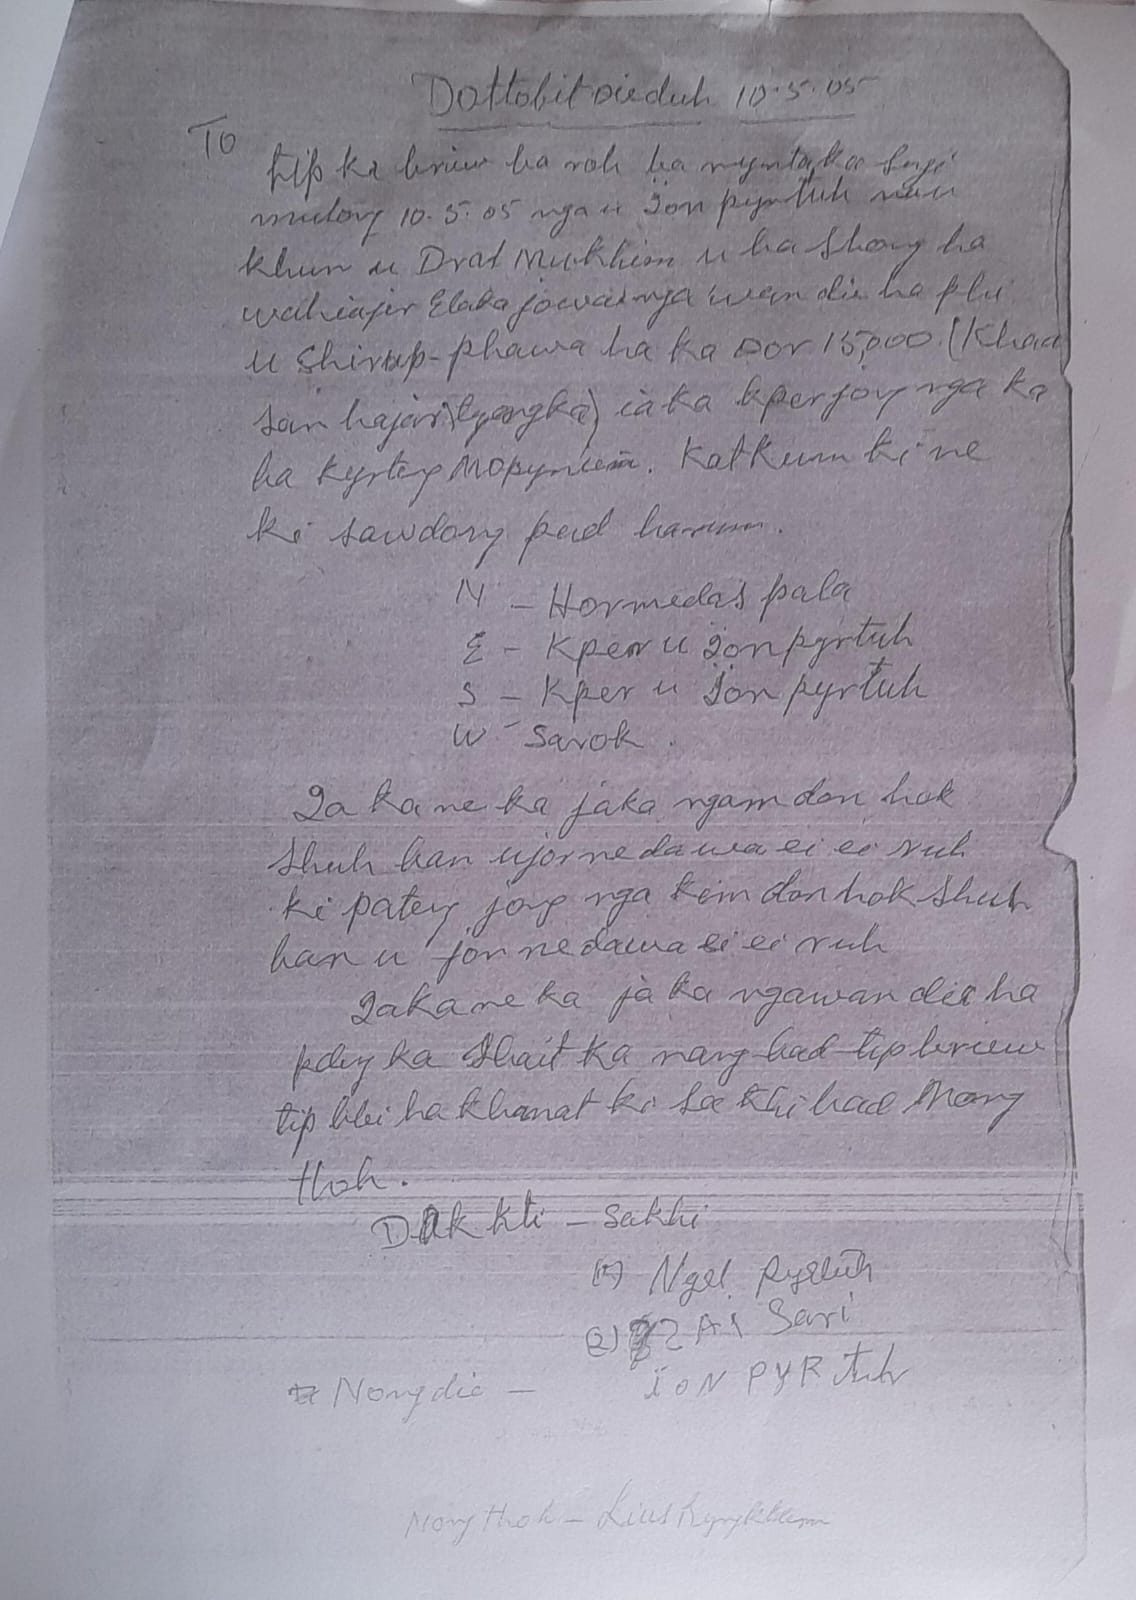 Dottobit dieduh 10.5.05
To
tip ka briew ba roh ba mynta ka sngi
mulong 10.5.05 nga u Ïon pyrtuh uwu
khun u Drat Mukhim u ba shong ha
wahiajer Elaka jowai nga wan die ha phi
u Shirup-phawa ha ka Dor 15,000. (Khad
san hajar tyngka) ïa ka kper jong nga ka
ba kyrteng Mopyniein. Katkum ki ne
ki sawdong pud harum.
N - Hormedas pala
E - Kper u Ïon pyrtuh
S - Kper u Ïon pyrtuh
W - Sarok.
Ïa kane ka jaka ngam don hok
shuh ban ujor ne dawa ei ei ruh
ki pateng jong nga kim don hok shuh
ban u jor ne dawa ei ei ruh
Ïa kane ka jaka nga wan die ha
pdeng ka shait ka rang bad tip briew
tip blei ha khmat ki sakhi bad Nong
thoh.
Dak kti - Sakhi
(1) Ngel Pyrtuh
(2) ZAI Sari
Nongdie - ÏON PYRtuh
Nongthoh - Lius